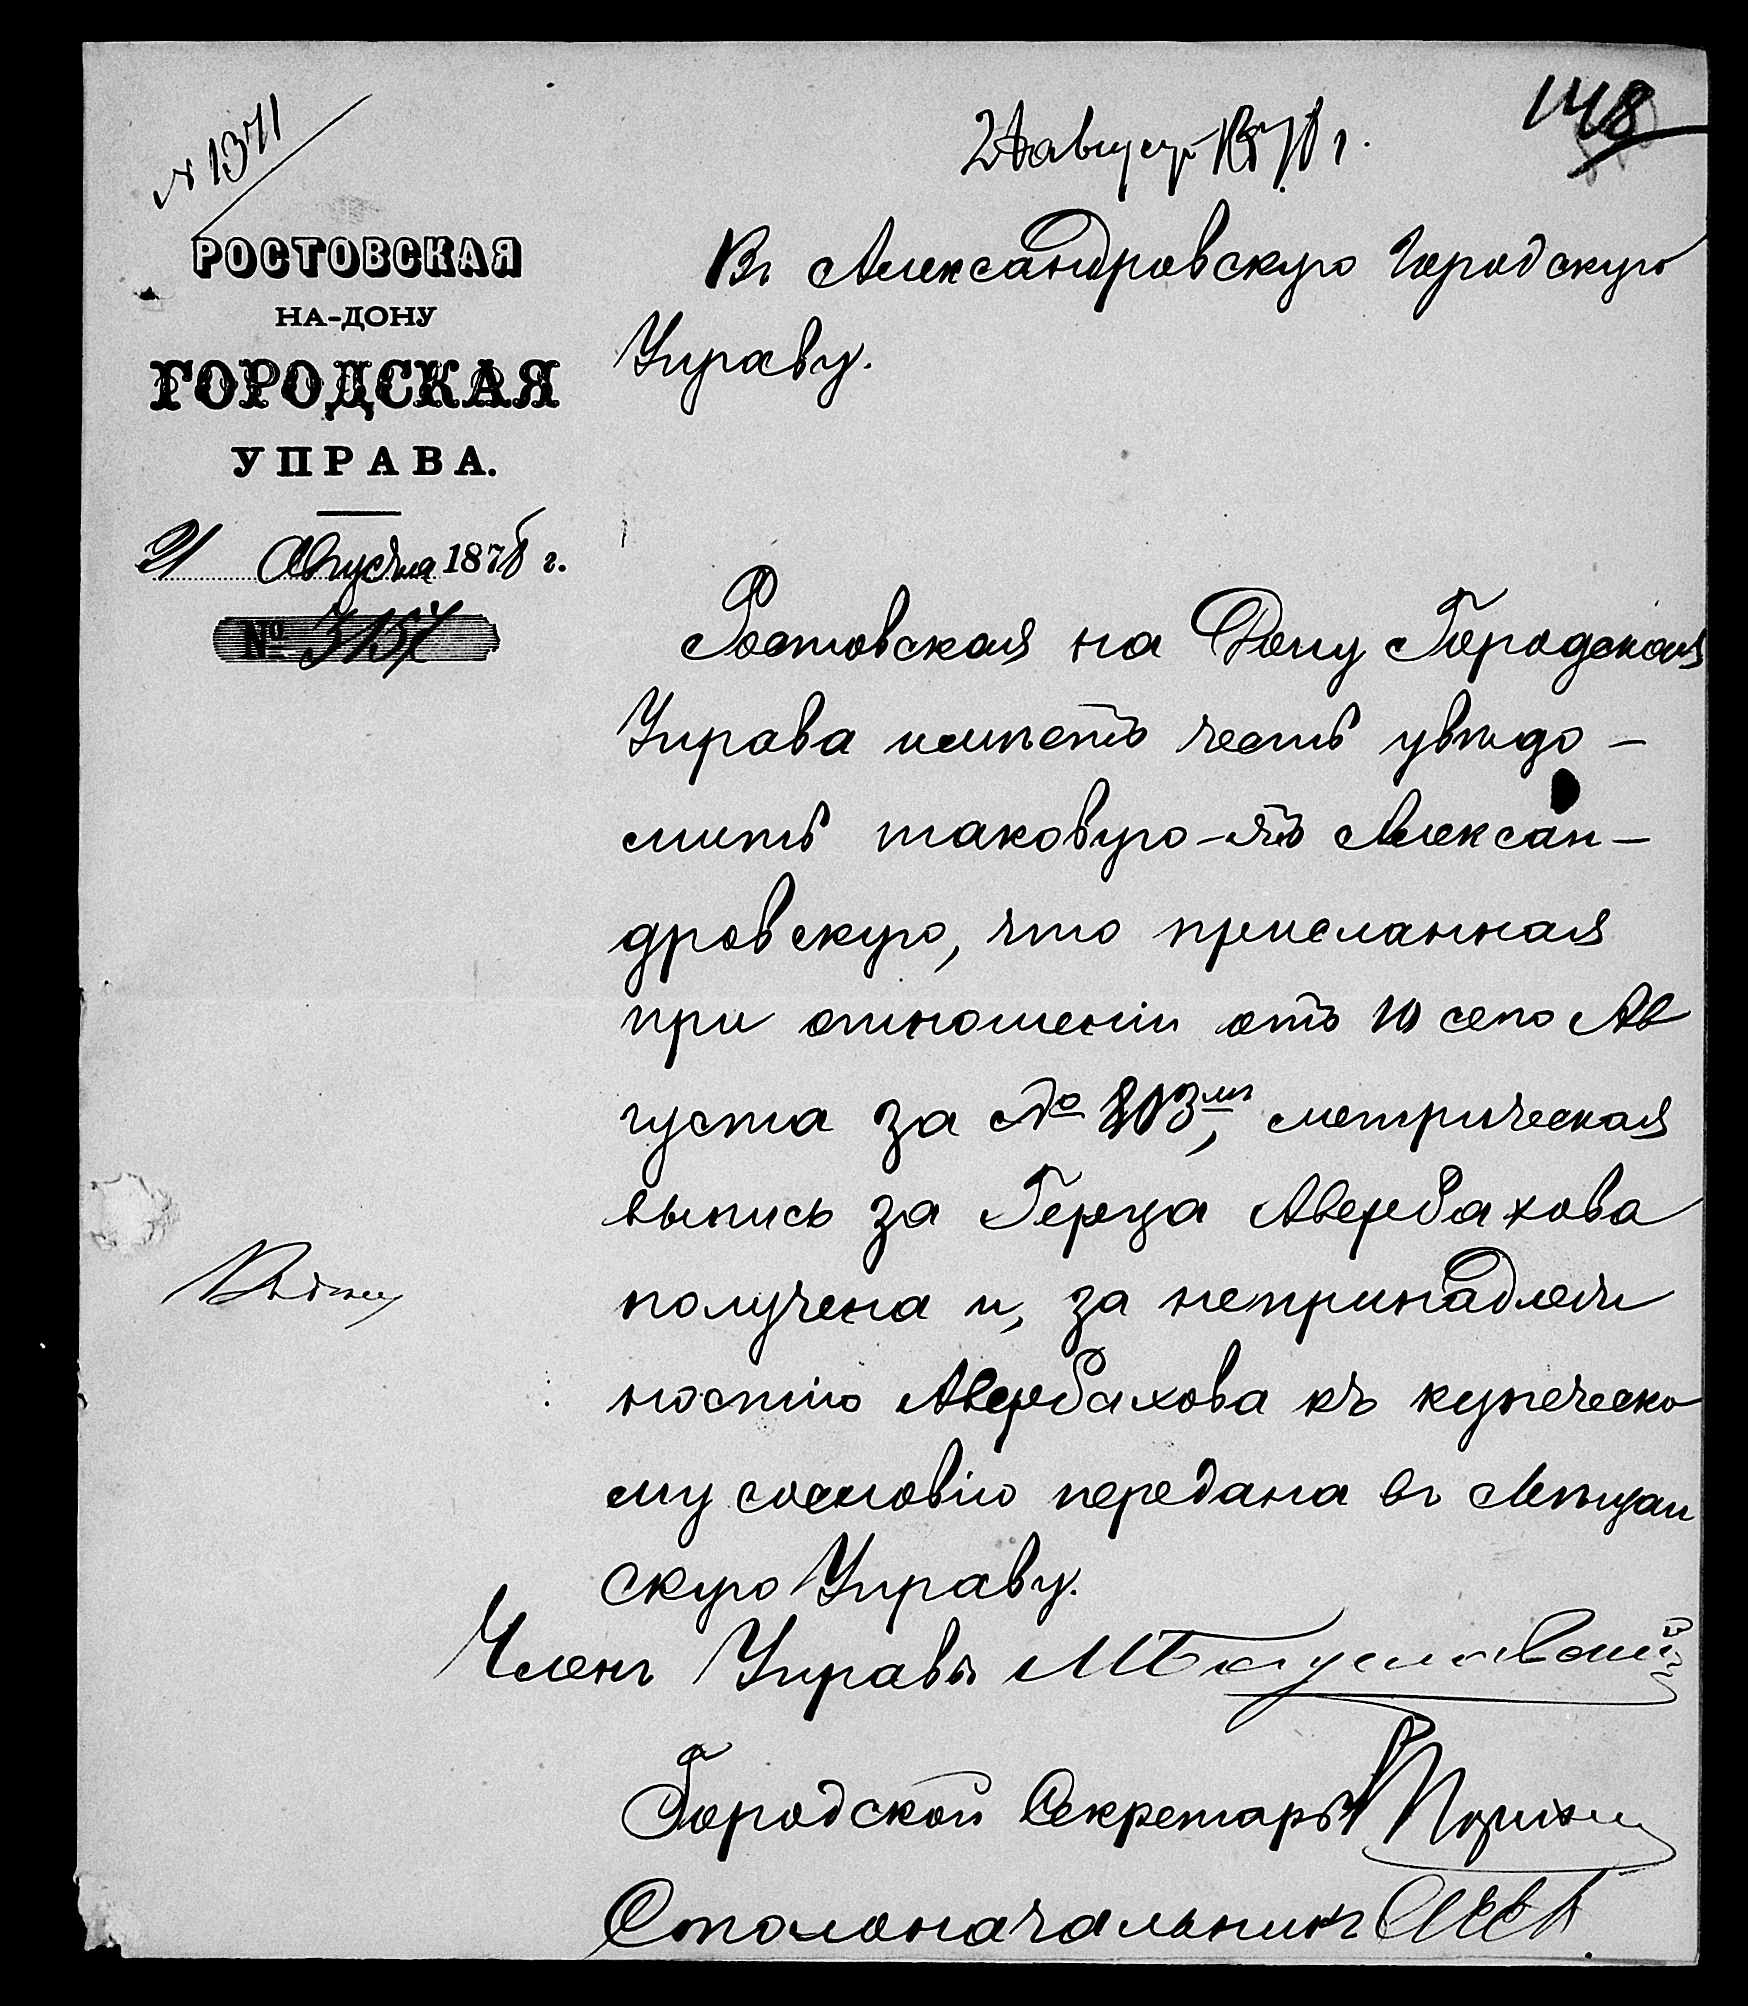 № 1371
148
24 август 1878 г.
РОСТОВСКАЯ
НА-ДОНУ
ГОРОДСКАЯ
УПРАВА.
21 Августа 1878 г.
№ 3157
Въ Александровскую Городскую
Управу.
Ростовская на Дону Городская
Управа имѣетъ честь увѣдо-
мить таковую-жъ Алексан-
дровскую, что присланная
при отношеніи отъ 10 сего Ав
густа за № 803мъ, метрическая
выпись за Герца Авербахова
получена и, за непринадлеж
ностію Авербахова къ купеческо
му сословію передана въ Мѣщан
скую Управу.
Членъ Управы
Городской Секретарь
Столоначальникъ